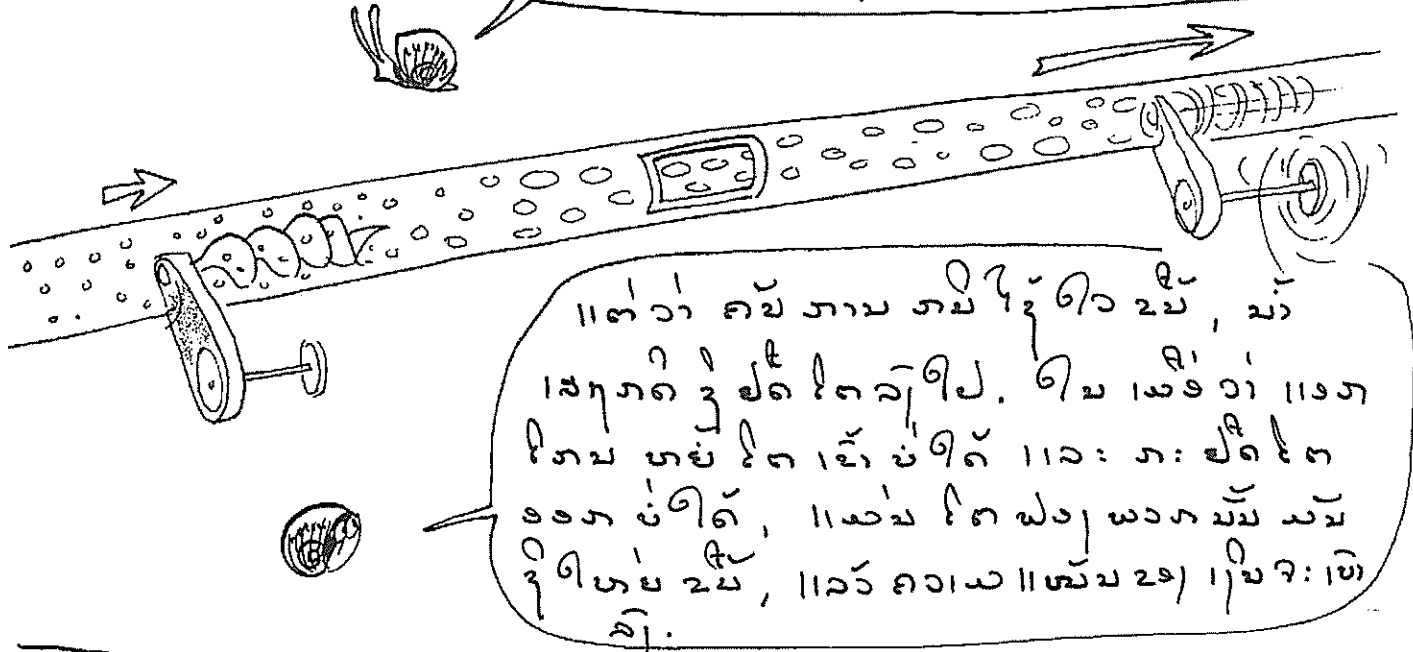 ແຕ່ວ່າ ຄັນ ການ ກນີ ໄຊ້ ໄວ ຂຶ້ນ, ນ້ຳ
ເສດກດ ຊິ ຢືດ ໂຕ ລົງ ໄປ. ໃນ ເມື່ອ ວ່າ ແອກ
ໂກນ ຫຍໍ້ ໂຕ ເຂົ້າ ບໍ່ ໄດ້ ແລະ ກະ ຢືດ ໂຕ
ອອກ ບໍ່ ໄດ້, ແມ່ນ ໂຕ ຟອງ ພວກ ນັ້ນ ມັນ
ຊິ ໃຫຍ່ ຂຶ້ນ, ແລ້ວ ຄວາມ ແໜ້ນ ຂອງ ເງິນ ຈະ ເບົາ
ລົງ.